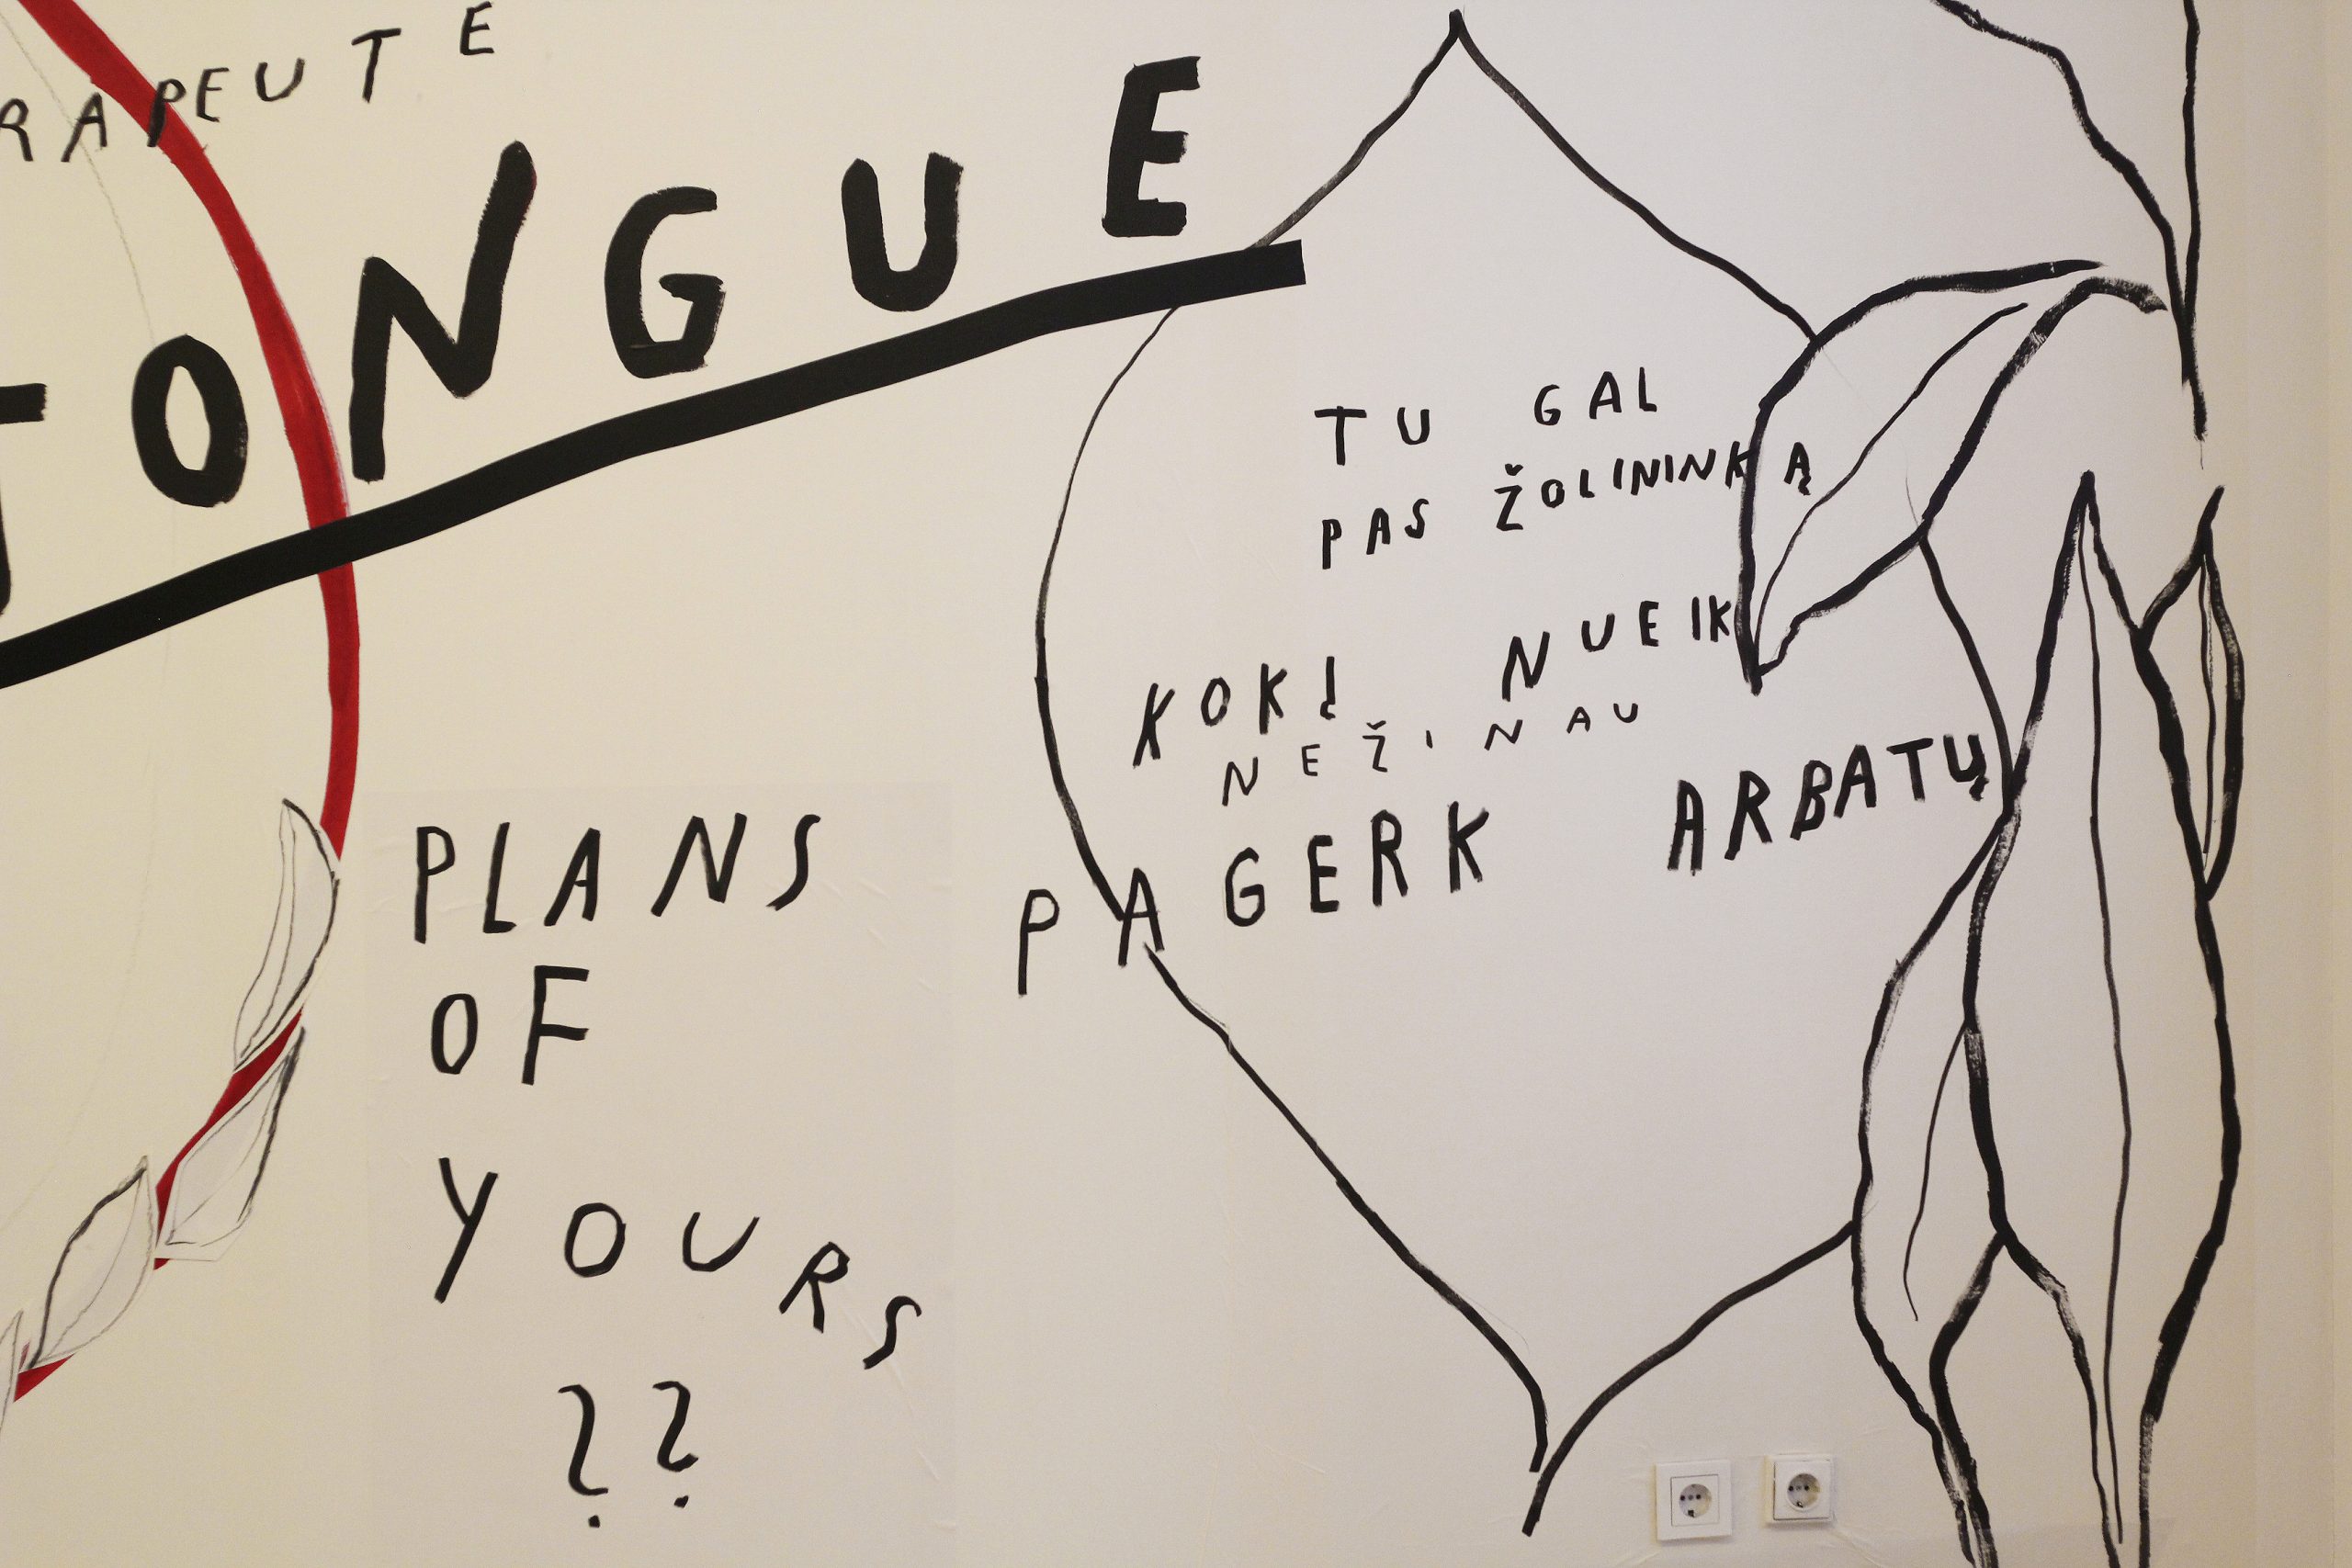 RAPEUTE
TONGUE
PLANS
OF
YOURS
??
TU GAL
PAS ŽOLININKĄ
KOKĮ NUEIK
NEŽINAU
PAGERK ARBATŲ